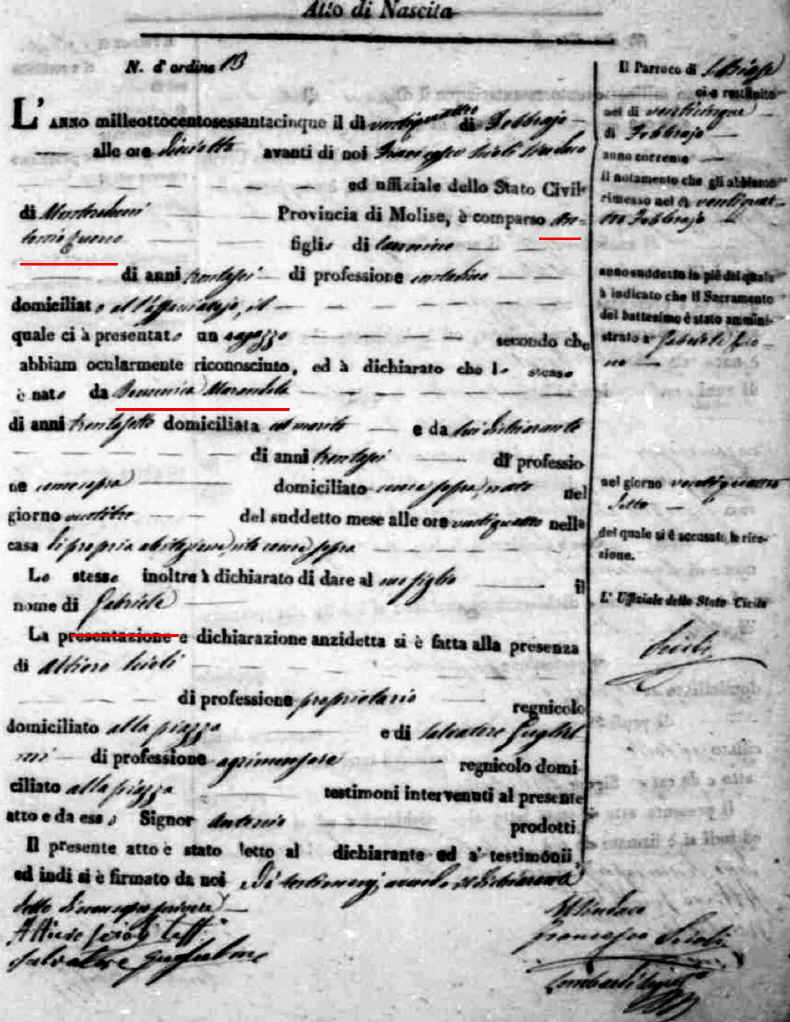 Atto di Nascita
N. d'ordine 13
L'ANNO milleottocentosessantacinque il dì ventiquattro di Febbrajo
alle ore diciotto avanti di noi Francesco Scioli Sindaco
ed uffiziale dello Stato Civil
di Provincia di Molise, è comparso An-
tonio figlio di Carmine
di anni trentasei di professione contadino
domiciliato il
quale ci à presentato un ragazzo secondo che
abbiam ocularmente riconosciuto, ed à dichiarato che lo stesso
è nato da Domenica
di anni trentasette domiciliata col marito e da lui dichiarante
di anni trentasei di professio
ne come sopra domiciliato come sopra, nato nel
giorno ventitre del suddetto mese alle ore ventiquattro nella
casa di propria abitazione sita come sopra
Lo stesso inoltre à dichiarato di dare al suo figlio il
nome di Gabriele
La presentazione e dichiarazione anzidetta si è fatta alla presenza
di Alfieri Scioli
di professione proprietario regnicolo
domiciliato alla piazza e di Salvatore Gugliel
mi di professione agrimensore regnicolo domi
ciliato alla piazza testimoni intervenuti al presente
atto e da esso Signor Antonio prodotti
Il presente atto è stato letto al dichiarante ed a' testimonii
ed indi si è firmato da noi, dichiarante
detto di non saper scrivere
Salvatore Guglielmi
Il Sindaco
Francesco Scioli
Il Parroco di S. Biase
ci a restituito
nel dì venticinque
di Febbrajo
anno corrente
il notamento che gli abbiamo
rimesso nel dì ventiquat
tro Febbrajo
anno suddetto in piè del quale
à indicato che il Sacramento
del battesimo è stato ammini-
strato a Gabriele
nel giorno ventiquattro
detto
del quale si è accusato la rice-
zione.
L' Uffiziale dello Stato Civile
Scioli